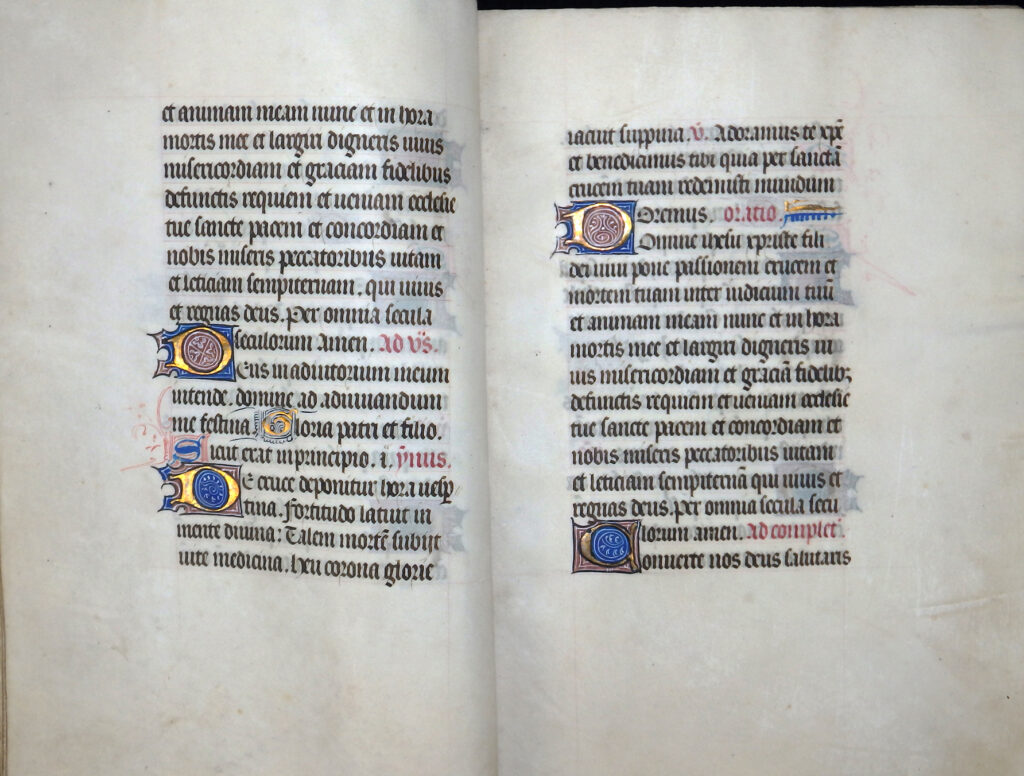 et animam meam nunc et in hora
mortis mee et largiri digneris uiuis
misericordiam et graciam fidelibus
defunctis requiem et ueniam ecclesie
tue sancte pacem et concordiam et
nobis miseris peccatoribus uitam
et leticiam sempiternam. qui uiuis
et regnas deus. Per omnia secula
seculorum Amen. Ad vs̄.
Deus in adiutorium meum
intende. domine ad adiuuandum
me festina. Gloria patri et filio.
Sicut erat in principio. i. ẏmus.
De cruce deponitur hora uesp̄
tina. Fortitudo latuit in
mente diuina: Talem mortē subijt
uite medicina. heu corona glorie
iacuit suppina. v̄. Adoramus te xp̄e
et benedicimus tibi quia per sanctā
crucem tuam redemisti mundum
Oremus. oratio.
Domine ihesu xpriste fili
dei uiui pone passionem crucem et
mortem tuam inter iudicium tuū
et animam meam nunc et in hora
mortis mee et largiri digneris ui
uis misericordiam et graciā fidelibꝫ
defunctis requiem et ueniam ecclesie
tue sancte pacem et concordiam et
nobis miseris peccatoribus uitam
et leticiam sempiternā qui uiuis et
regnas deus. per omnia secula secu
lorum amen. Ad complet̄.
Conuerte nos deus salutaris